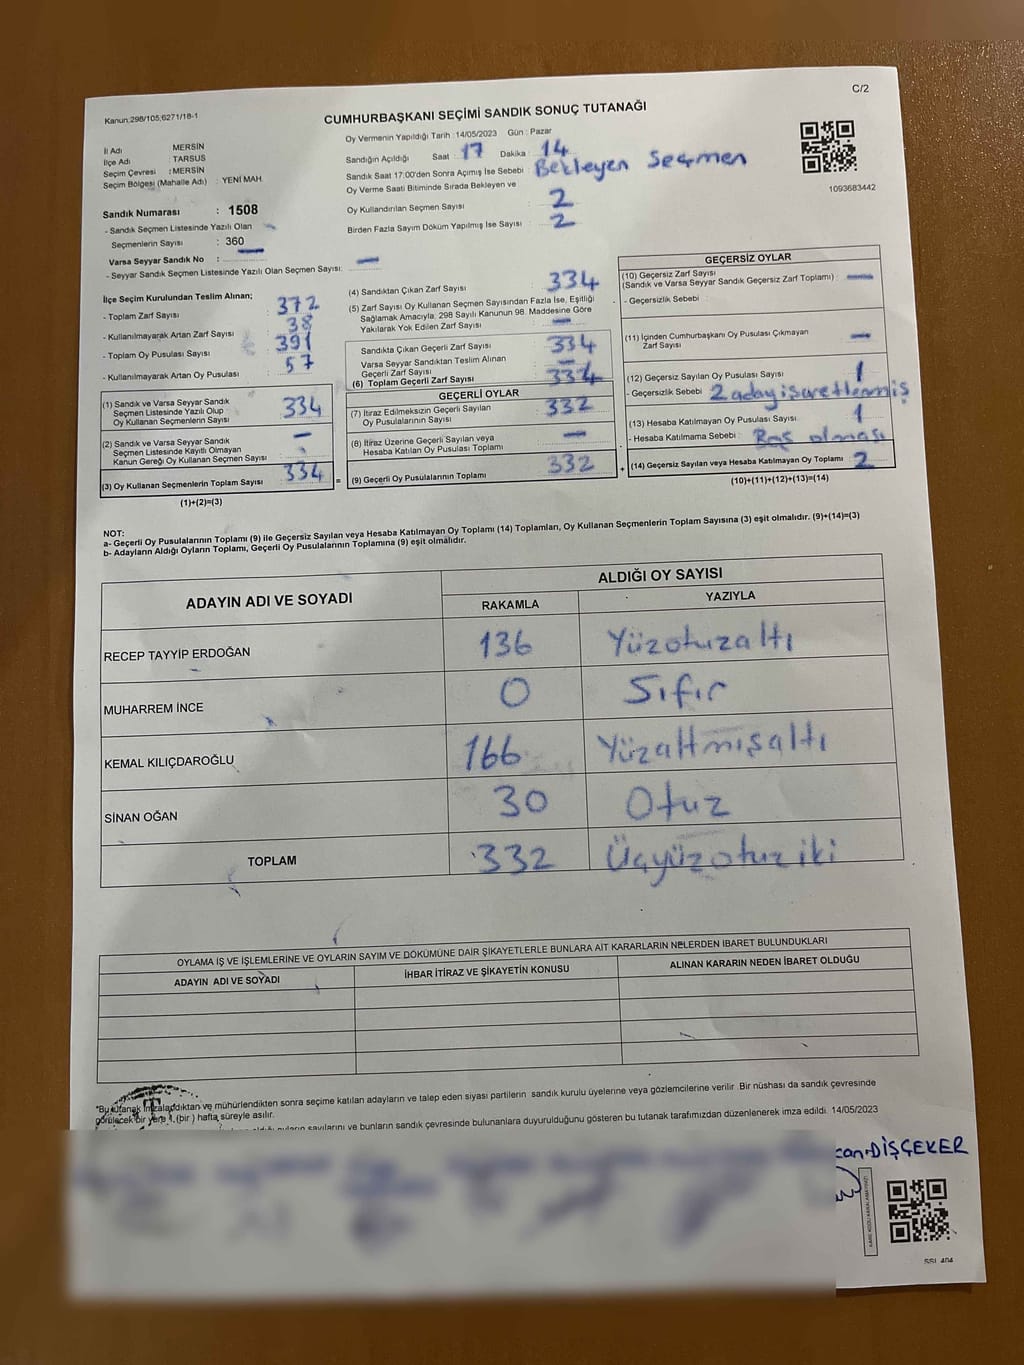 C/2
Kanun:298/105;6271/18-1
CUMHURBAŞKANI SEÇİMİ SANDIK SONUÇ TUTANAĞI
İl Adı MERSİN
İlçe Adı : TARSUS
Seçim Çevresi : MERSİN
Seçim Bölgesi (Mahalle Adı) : YENİ MAH.
Sandık Numarası : 1508
- Sandık Seçmen Listesinde Yazılı Olan
Seçmenlerin Sayısı : 360
Varsa Seyyar Sandık No : —
- Seyyar Sandık Seçmen Listesinde Yazılı Olan Seçmen Sayısı: —
Oy Vermenin Yapıldığı Tarih :14/05/2023 Gün : Pazar
Sandığın Açıldığı Saat : 17 Dakika : 14
Sandık Saat 17:00'den Sonra Açımış İse Sebebi : Bekleyen Seçmen
Oy Verme Saati Bitiminde Sırada Bekleyen ve
Oy Kullandırılan Seçmen Sayısı : 2
Birden Fazla Sayım Döküm Yapılmış İse Sayısı : 2
1093683442
İlçe Seçim Kurulundan Teslim Alınan;
- Toplam Zarf Sayısı : 372
- Kullanılmayarak Artan Zarf Sayısı : 38
- Toplam Oy Pusulası Sayısı : 391
- Kullanılmayarak Artan Oy Pusulası : 57
(1) Sandık ve Varsa Seyyar Sandık
Seçmen Listesinde Yazılı Olup
Oy Kullanan Seçmenlerin Sayısı : 334
(2) Sandık ve Varsa Seyyar Sandık
Seçmen Listesinde Kayıtlı Olmayan
Kanun Gereği Oy Kullanan Seçmen Sayısı : —
(3) Oy Kullanan Seçmenlerin Toplam Sayısı : 334
(1)+(2)=(3)
(4) Sandıktan Çıkan Zarf Sayısı : 334
(5) Zarf Sayısı Oy Kullanan Seçmen Sayısından Fazla İse, Eşitliği
Sağlamak Amacıyla, 298 Sayılı Kanunun 98. Maddesine Göre
Yakılarak Yok Edilen Zarf Sayısı : —
Sandıkta Çıkan Geçerli Zarf Sayısı : 334
Varsa Seyyar Sandıktan Teslim Alınan
Geçerli Zarf Sayısı : —
(6) Toplam Geçerli Zarf Sayısı : 334
GEÇERLİ OYLAR
(7) İtiraz Edilmeksizin Geçerli Sayılan
Oy Pusulalarının Sayısı : 332
(8) İtiraz Üzerine Geçerli Sayılan veya
Hesaba Katılan Oy Pusulası Toplamı : —
= (9) Geçerli Oy Pusulalarının Toplamı : 332
GEÇERSİZ OYLAR
(10) Geçersiz Zarf Sayısı
(Sandık ve Varsa Seyyar Sandık Geçersiz Zarf Toplamı) : —
- Geçersizlik Sebebi :
(11) İçinden Cumhurbaşkanı Oy Pusulası Çıkmayan
Zarf Sayısı : —
(12) Geçersiz Sayılan Oy Pusulası Sayısı : 1
- Geçersizlik Sebebi : 2 aday işaretlenmiş
(13) Hesaba Katılmayan Oy Pusulası Sayısı : 1
- Hesaba Katılmama Sebebi : Boş olması
+ (14) Geçersiz Sayılan veya Hesaba Katılmayan Oy Toplamı : 2
(10)+(11)+(12)+(13)=(14)
NOT:
a- Geçerli Oy Pusulalarının Toplamı (9) ile Geçersiz Sayılan veya Hesaba Katılmayan Oy Toplamı (14) Toplamları, Oy Kullanan Seçmenlerin Toplam Sayısına (3) eşit olmalıdır. (9)+(14)=(3)
b- Adayların Aldığı Oyların Toplamı, Geçerli Oy Pusulalarının Toplamına (9) eşit olmalıdır.
ADAYIN ADI VE SOYADI ALDIĞI OY SAYISI
RAKAMLA YAZIYLA
RECEP TAYYİP ERDOĞAN 136 Yüzotuzaltı
MUHARREM İNCE 0 Sıfır
KEMAL KILIÇDAROĞLU 166 Yüzaltmışaltı
SİNAN OĞAN 30 Otuz
TOPLAM 332 Üçyüzotuziki
OYLAMA İŞ VE İŞLEMLERİNE VE OYLARIN SAYIM VE DÖKÜMÜNE DAİR ŞİKAYETLERLE BUNLARA AİT KARARLARIN NELERDEN İBARET BULUNDUKLARI
ADAYIN ADI VE SOYADI İHBAR İTİRAZ VE ŞİKAYETİN KONUSU ALINAN KARARIN NEDEN İBARET OLDUĞU
*Bu tutanak imzalandıktan ve mühürlendikten sonra seçime katılan adayların ve talep eden siyasi partilerin sandık kurulu üyelerine veya gözlemcilerine verilir .Bir nüshası da sandık çevresinde
görülecek bir yere 1 (bir ) hafta süreyle asılır.
oyların sayılarını ve bunların sandık çevresinde bulunanlara duyurulduğunu gösteren bu tutanak tarafımızdan düzenlenerek imza edildi. 14/05/2023
can DİŞÇEKER